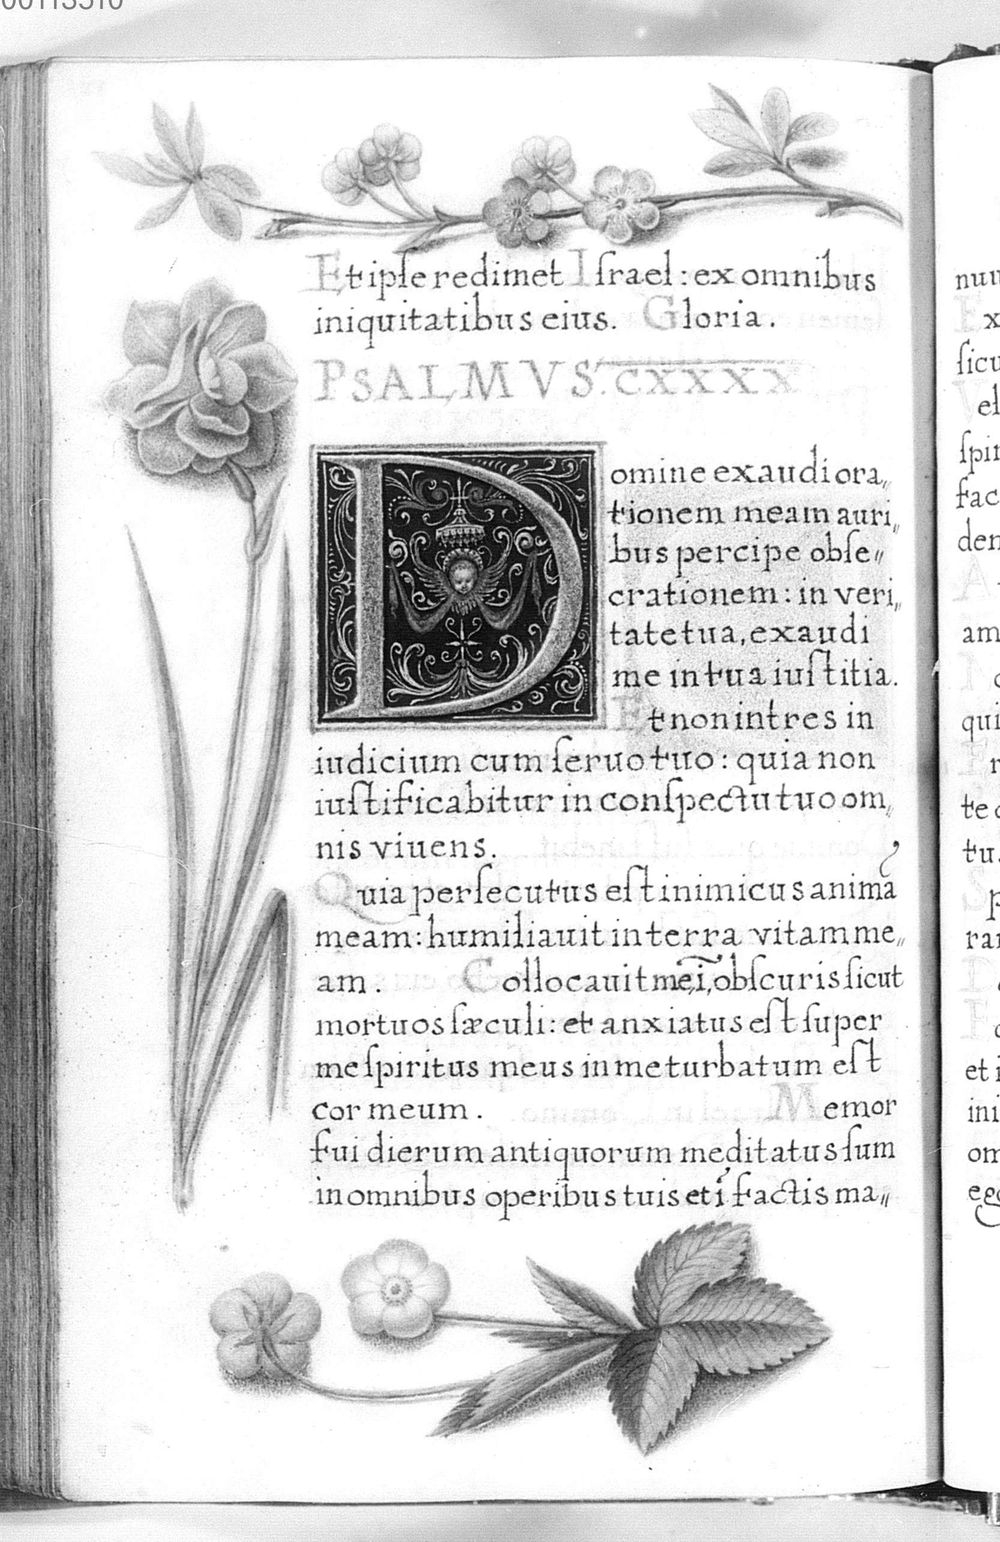 00113510
Et ipſe redimet Iſrael : ex omnibus
iniquitatibus eius. Gloria.
PSALMVS. CXXXX
Domine exaudi ora„
tionem meam auri„
bus percipe obſe„
crationem : in veri„
tate tua, exaudi
me in tua iuſtitia.
Et non intres in
iudicium cum ſeruo tuo : quia non
iuſtificabitur in conſpectu tuo om„
nis viuens.
Quia perſecutus eſt inimicus anima
meam : humiliauit in terra vitam me„
am. Collocauit me, ĩ, obſcuris ſicut
mortuos ſæculi : et anxiatus eſt ſuper
me ſpiritus meus in me turbatum eſt
cor meum. Memor
fui dierum antiquorum meditatus ſum
in omnibus operibus tuis et ĩ factis ma„
ſicu
fac
den
am
qui
te
tu.
et i
ini
om